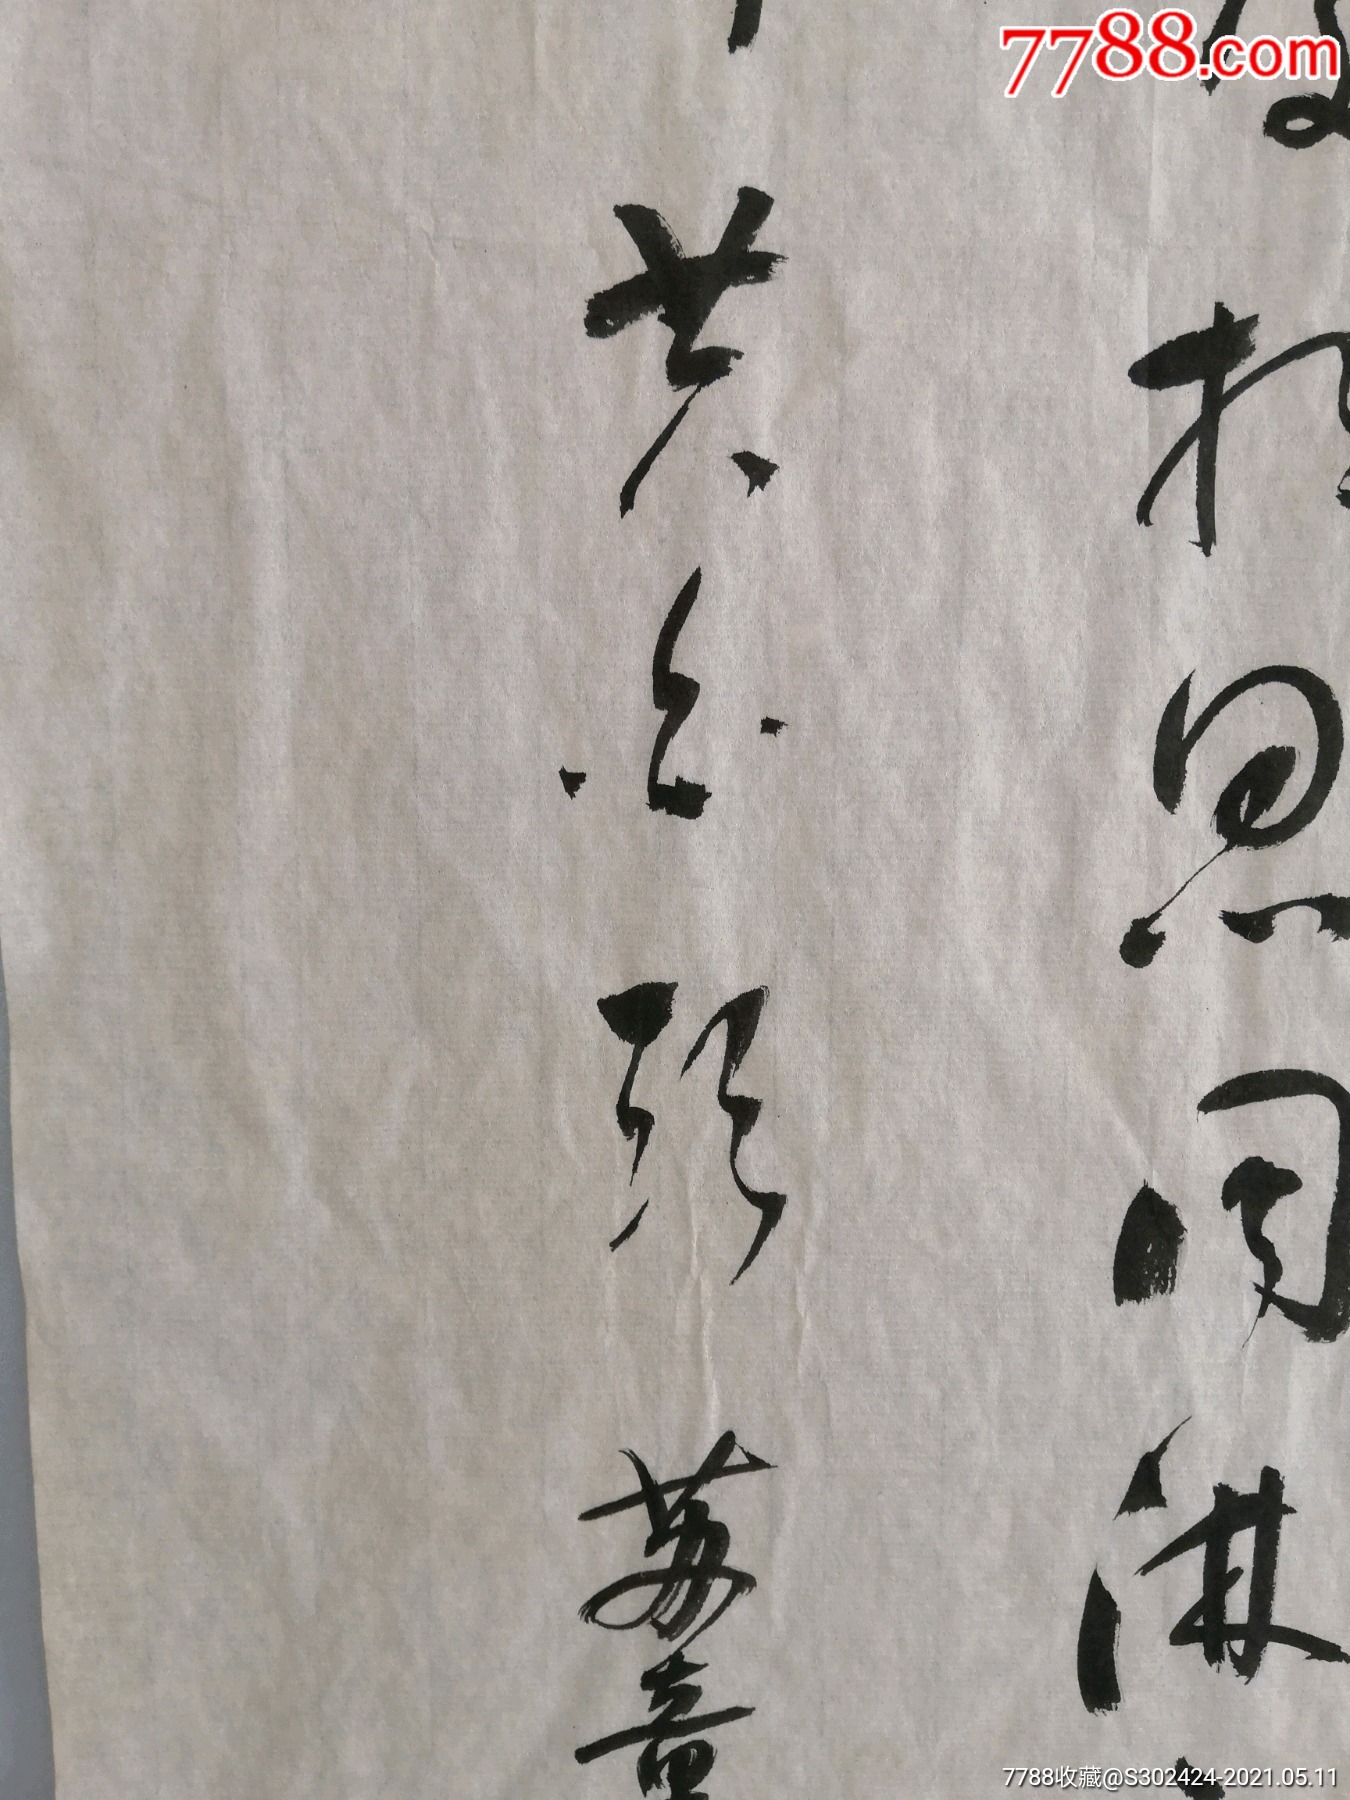 7788.com
相思同淋
共白頭
苏
7788收藏@S302424-2021.05.11